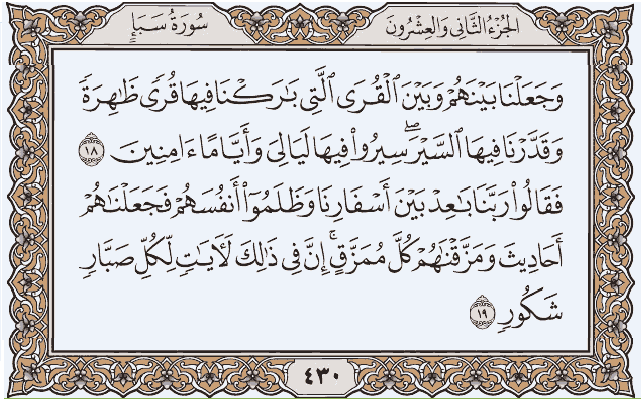 الجزء الثاني والعشرون
سورة سبإ
وَجَعَلْنَا بَيْنَهُمْ وَبَيْنَ ٱلْقُرَى ٱلَّتِى بَٰرَكْنَا فِيهَا قُرًى ظَٰهِرَةً
وَقَدَّرْنَا فِيهَا ٱلسَّيْرَ ۖ سِيرُوا۟ فِيهَا لَيَالِىَ وَأَيَّامًا ءَامِنِينَ ١٨
فَقَالُوا۟ رَبَّنَا بَٰعِدْ بَيْنَ أَسْفَارِنَا وَظَلَمُوٓا۟ أَنفُسَهُمْ فَجَعَلْنَٰهُمْ
أَحَادِيثَ وَمَزَّقْنَٰهُمْ كُلَّ مُمَزَّقٍ ۚ إِنَّ فِى ذَٰلِكَ لَءَايَٰتٍ لِّكُلِّ صَبَّارٍ
شَكُورٍ ١٩
٤٣٠